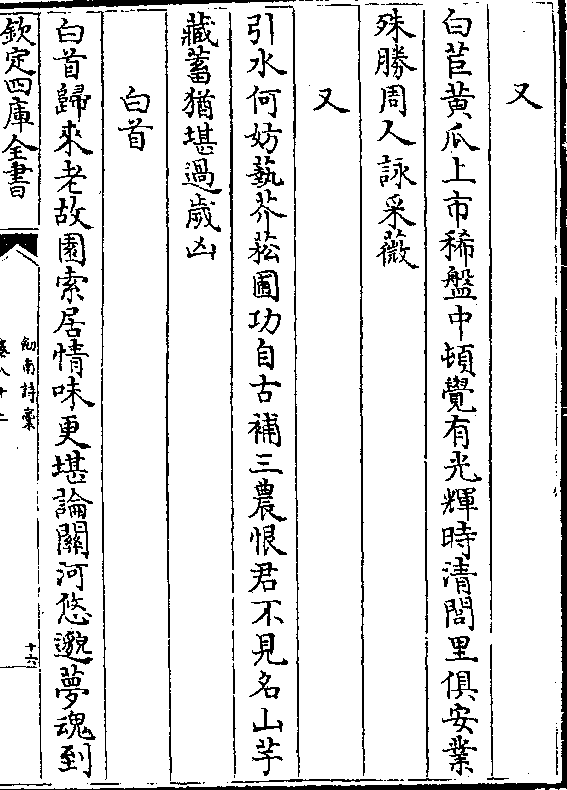 又
白苣黄瓜上市稀盤中頓覺有光輝時清閭里俱安業
殊勝周人詠采薇
又
引水何妨藝芥菘圃功自古補三農恨君不見名山芋
藏蓄猶堪過歲凶
白首
白首歸來老故園索居情味更堪論關河悠邈夢魂到
欽定四庫全書
劒南詩稾
卷八十二
十六